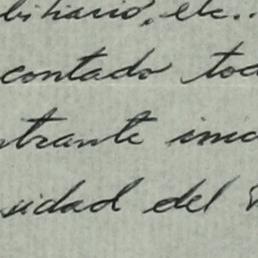 biliario, etc..
contado tod
trante inic
sidad del